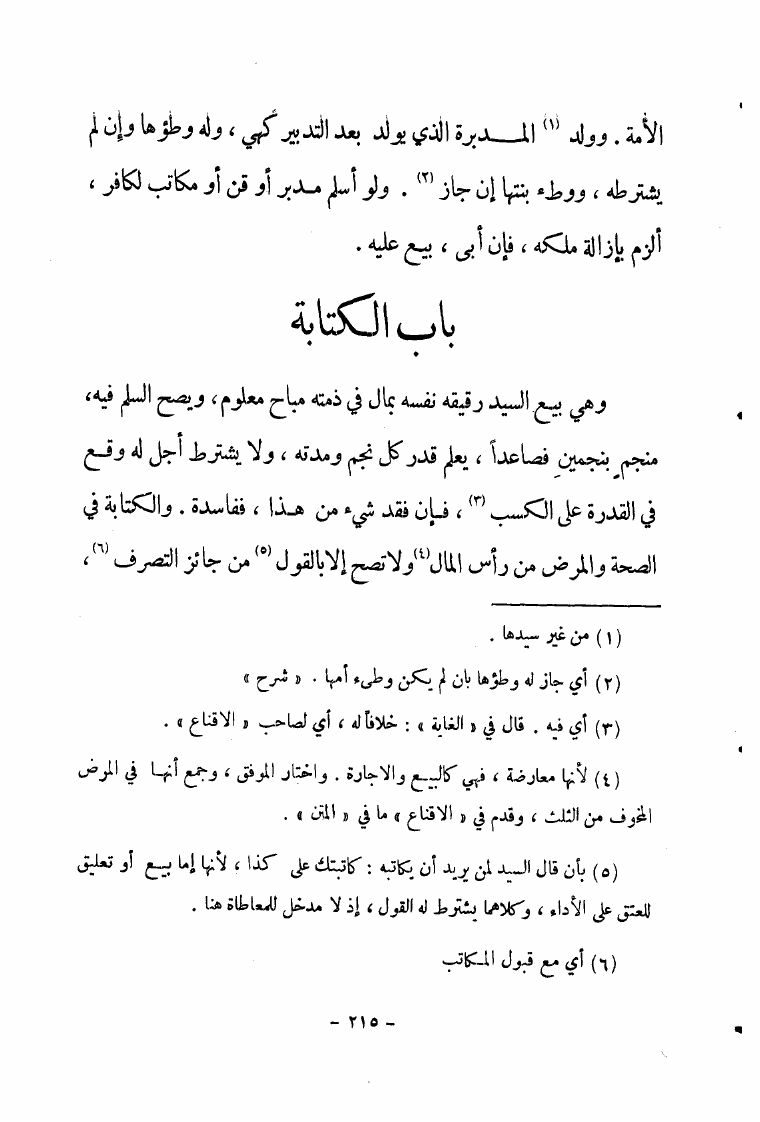 الأمة . وولد (١) المـــدبرة الذي يولد بعد التدبير كهي ، وله وطؤها وإن لم
يشترطه ، ووطء بنتها إن جاز (٢) . ولو أسلم مدبر أو قن أو مكاتب لكافر ،
ألزم بإزالة ملكه ، فإن أبى ، بيع عليه .
باب الكتابة
وهي بيع السيد رقيقه نفسه بمال في ذمته مباح معلوم ، ويصح السلم فيه،
منجمٍ بنجمينِ فصاعداً ، يعلم قدر كل نجم ومدته ، ولا يشترط أجل له وقع
في القدرة على الكسب (٣) ، فإن فقد شيء من هذا ، ففاسدة . والكتابة في
الصحة والمرض من رأس المال(٤) ولا تصح إلا بالقول (٥) من جائز التصرف (٦) ،
(١) من غير سيدها .
(٢) أي جاز له وطؤها بان لم يكن وطىء أمها . « شرح »
(٣) أي فيه . قال في « الغاية » : خلافاً له ، أي لصاحب « الاقناع » .
(٤) لأنها معارضة ، فهي كالبيع والاجارة . واختار الموفق ، وجمع أنها في المرض
المخوف من الثلث ، وقدم في « الاقناع » ما في « المتن » .
(٥) بأن قال السيد لمن يريد أن يكاتبه : كاتبتك على كذا ، لأنها إما بيع أو تعليق
للعتق على الأداء ، وكلاهما يشترط له القول ، إذ لا مدخل للمعاطاة هنا .
(٦) أي مع قبول المكاتب
– ٢١٥ –